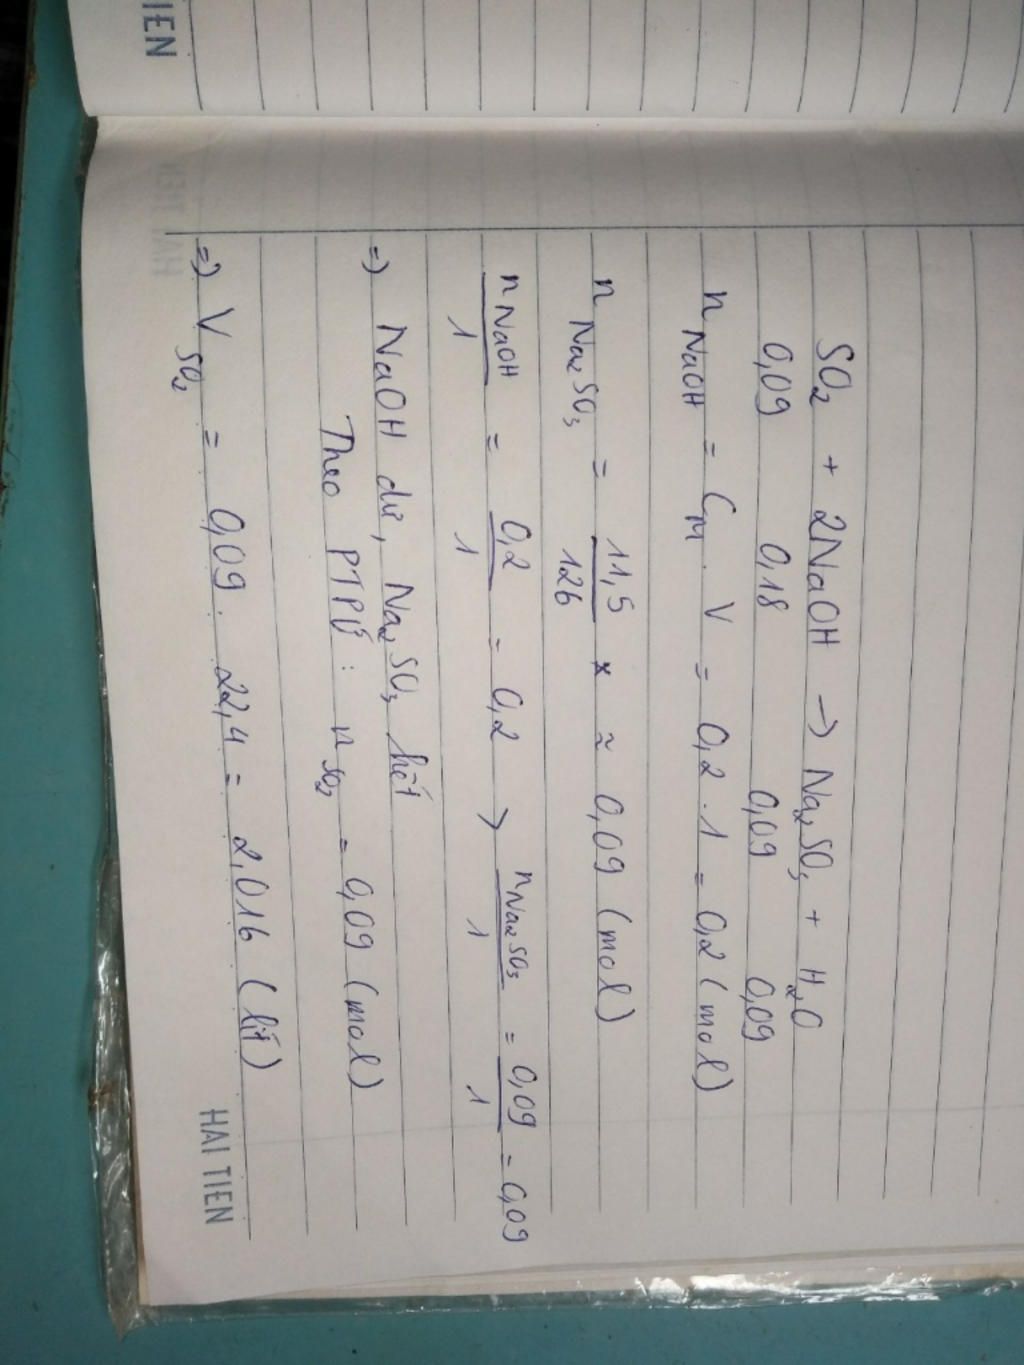 TIEN
SO₂ + 2NaOH → Na₂SO₃ + H₂O
0,09 0,18 0,09 0,09
n NaOH = CM . V = 0,2 . 1 = 0,2 (mol)
n Na₂SO₃ = 11,5/126 ≈ 0,09 (mol)
nNaOH/1 = 0,2/1 = 0,2 > nNa₂SO₃/1 = 0,09/1 = 0,09
=) NaOH dư, Na₂SO₃ hết
Theo PTPƯ : n SO₂ = 0,09 (mol)
=) V SO₂ = 0,09 . 22,4 = 2,016 (lít)
HAI TIEN